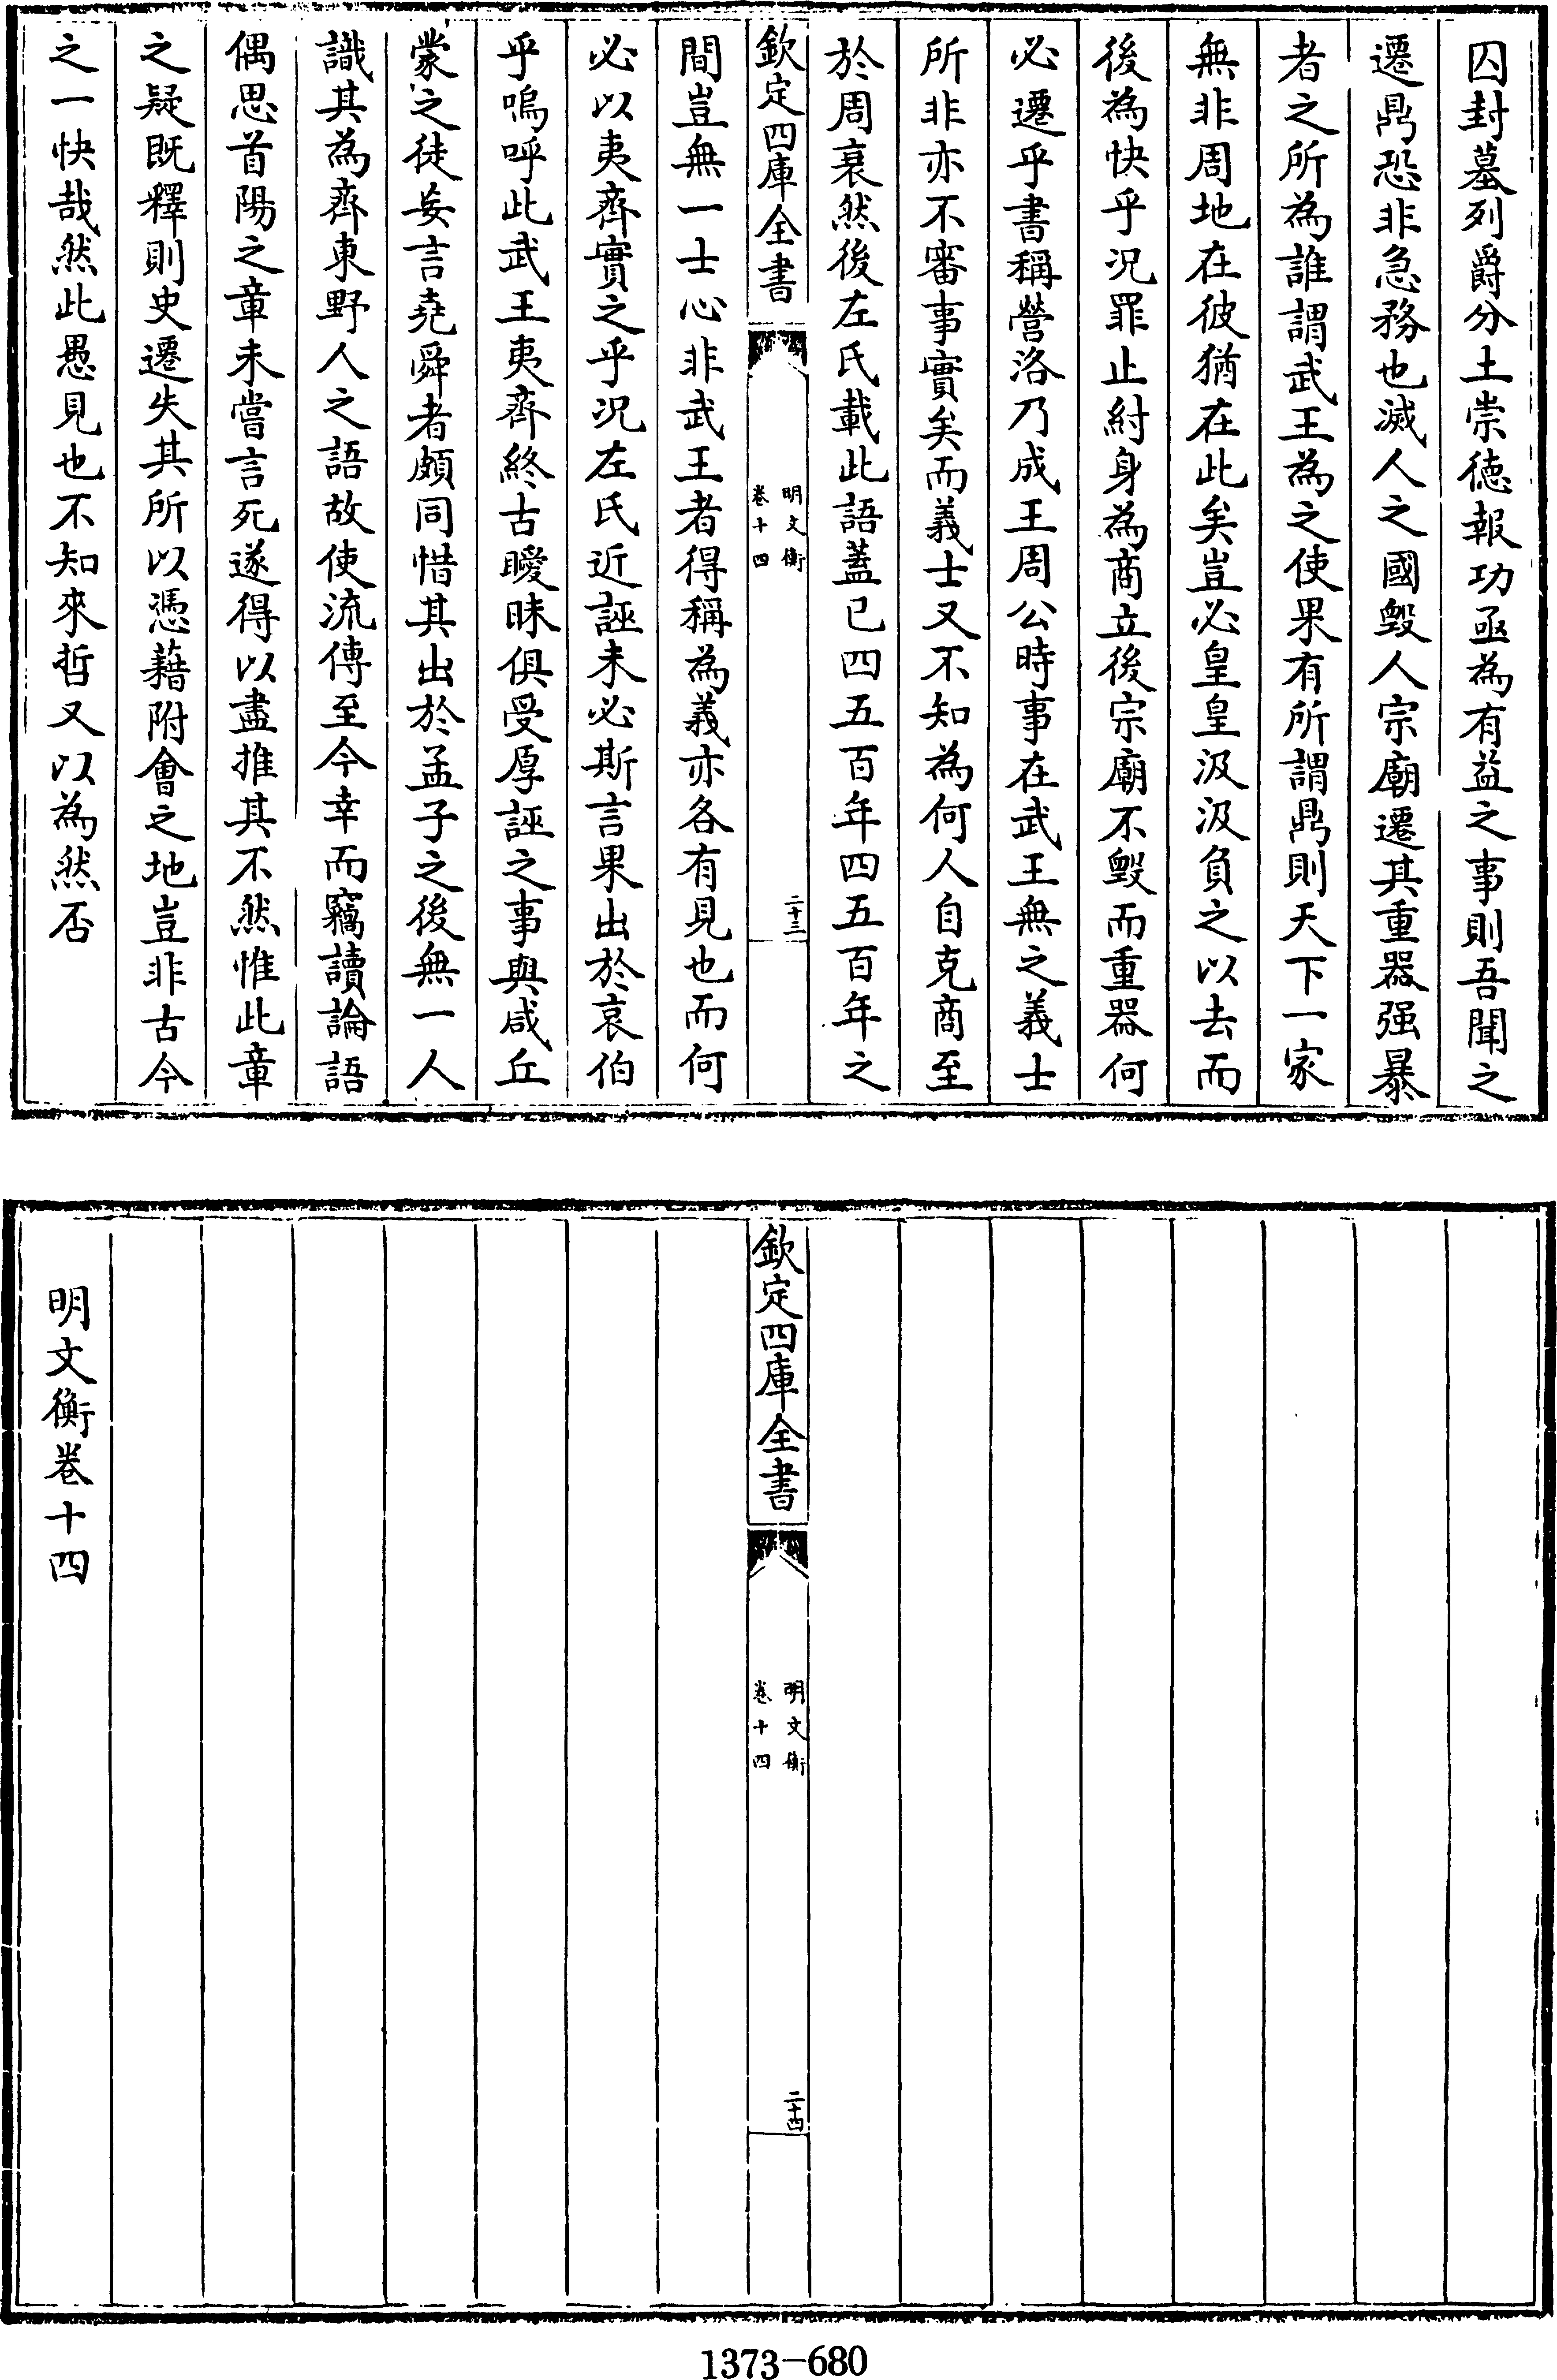 囚封墓列爵分土崇德報功亟為有益之事則吾聞之
遷鼎恐非急務也滅人之國毀人宗廟遷其重器强暴
者之所為誰謂武王為之使果有所謂鼎則天下一家
無非周地在彼猶在此矣豈必皇皇汲汲負之以去而
後為快乎況罪止紂身為商立後宗廟不毀而重器何
必遷乎書稱營洛乃成王周公時事在武王無之義士
所非亦不審事實矣而義士又不知為何人自克商至
於周衰然後左氏載此語蓋已四五百年四五百年之
欽定四庫全書
明文衡
卷十四
二十三
間豈無一士心非武王者得稱為義亦各有見也而何
必以夷齊實之乎況左氏近誣未必斯言果出於哀伯
乎嗚呼此武王夷齊終古曖昧俱受厚誣之事與咸丘
蒙之徒妄言堯舜者頗同惜其出於孟子之後無一人
識其為齊東野人之語故使流傳至今幸而竊讀論語
偶思首陽之章未嘗言死遂得以盡推其不然惟此章
之疑既釋則史遷失其所以憑藉附會之地豈非古今
之一快哉然此愚見也不知來哲又以為然否
欽定四庫全書
明文衡
卷十四
二十四
明文衡卷十四
1373-680